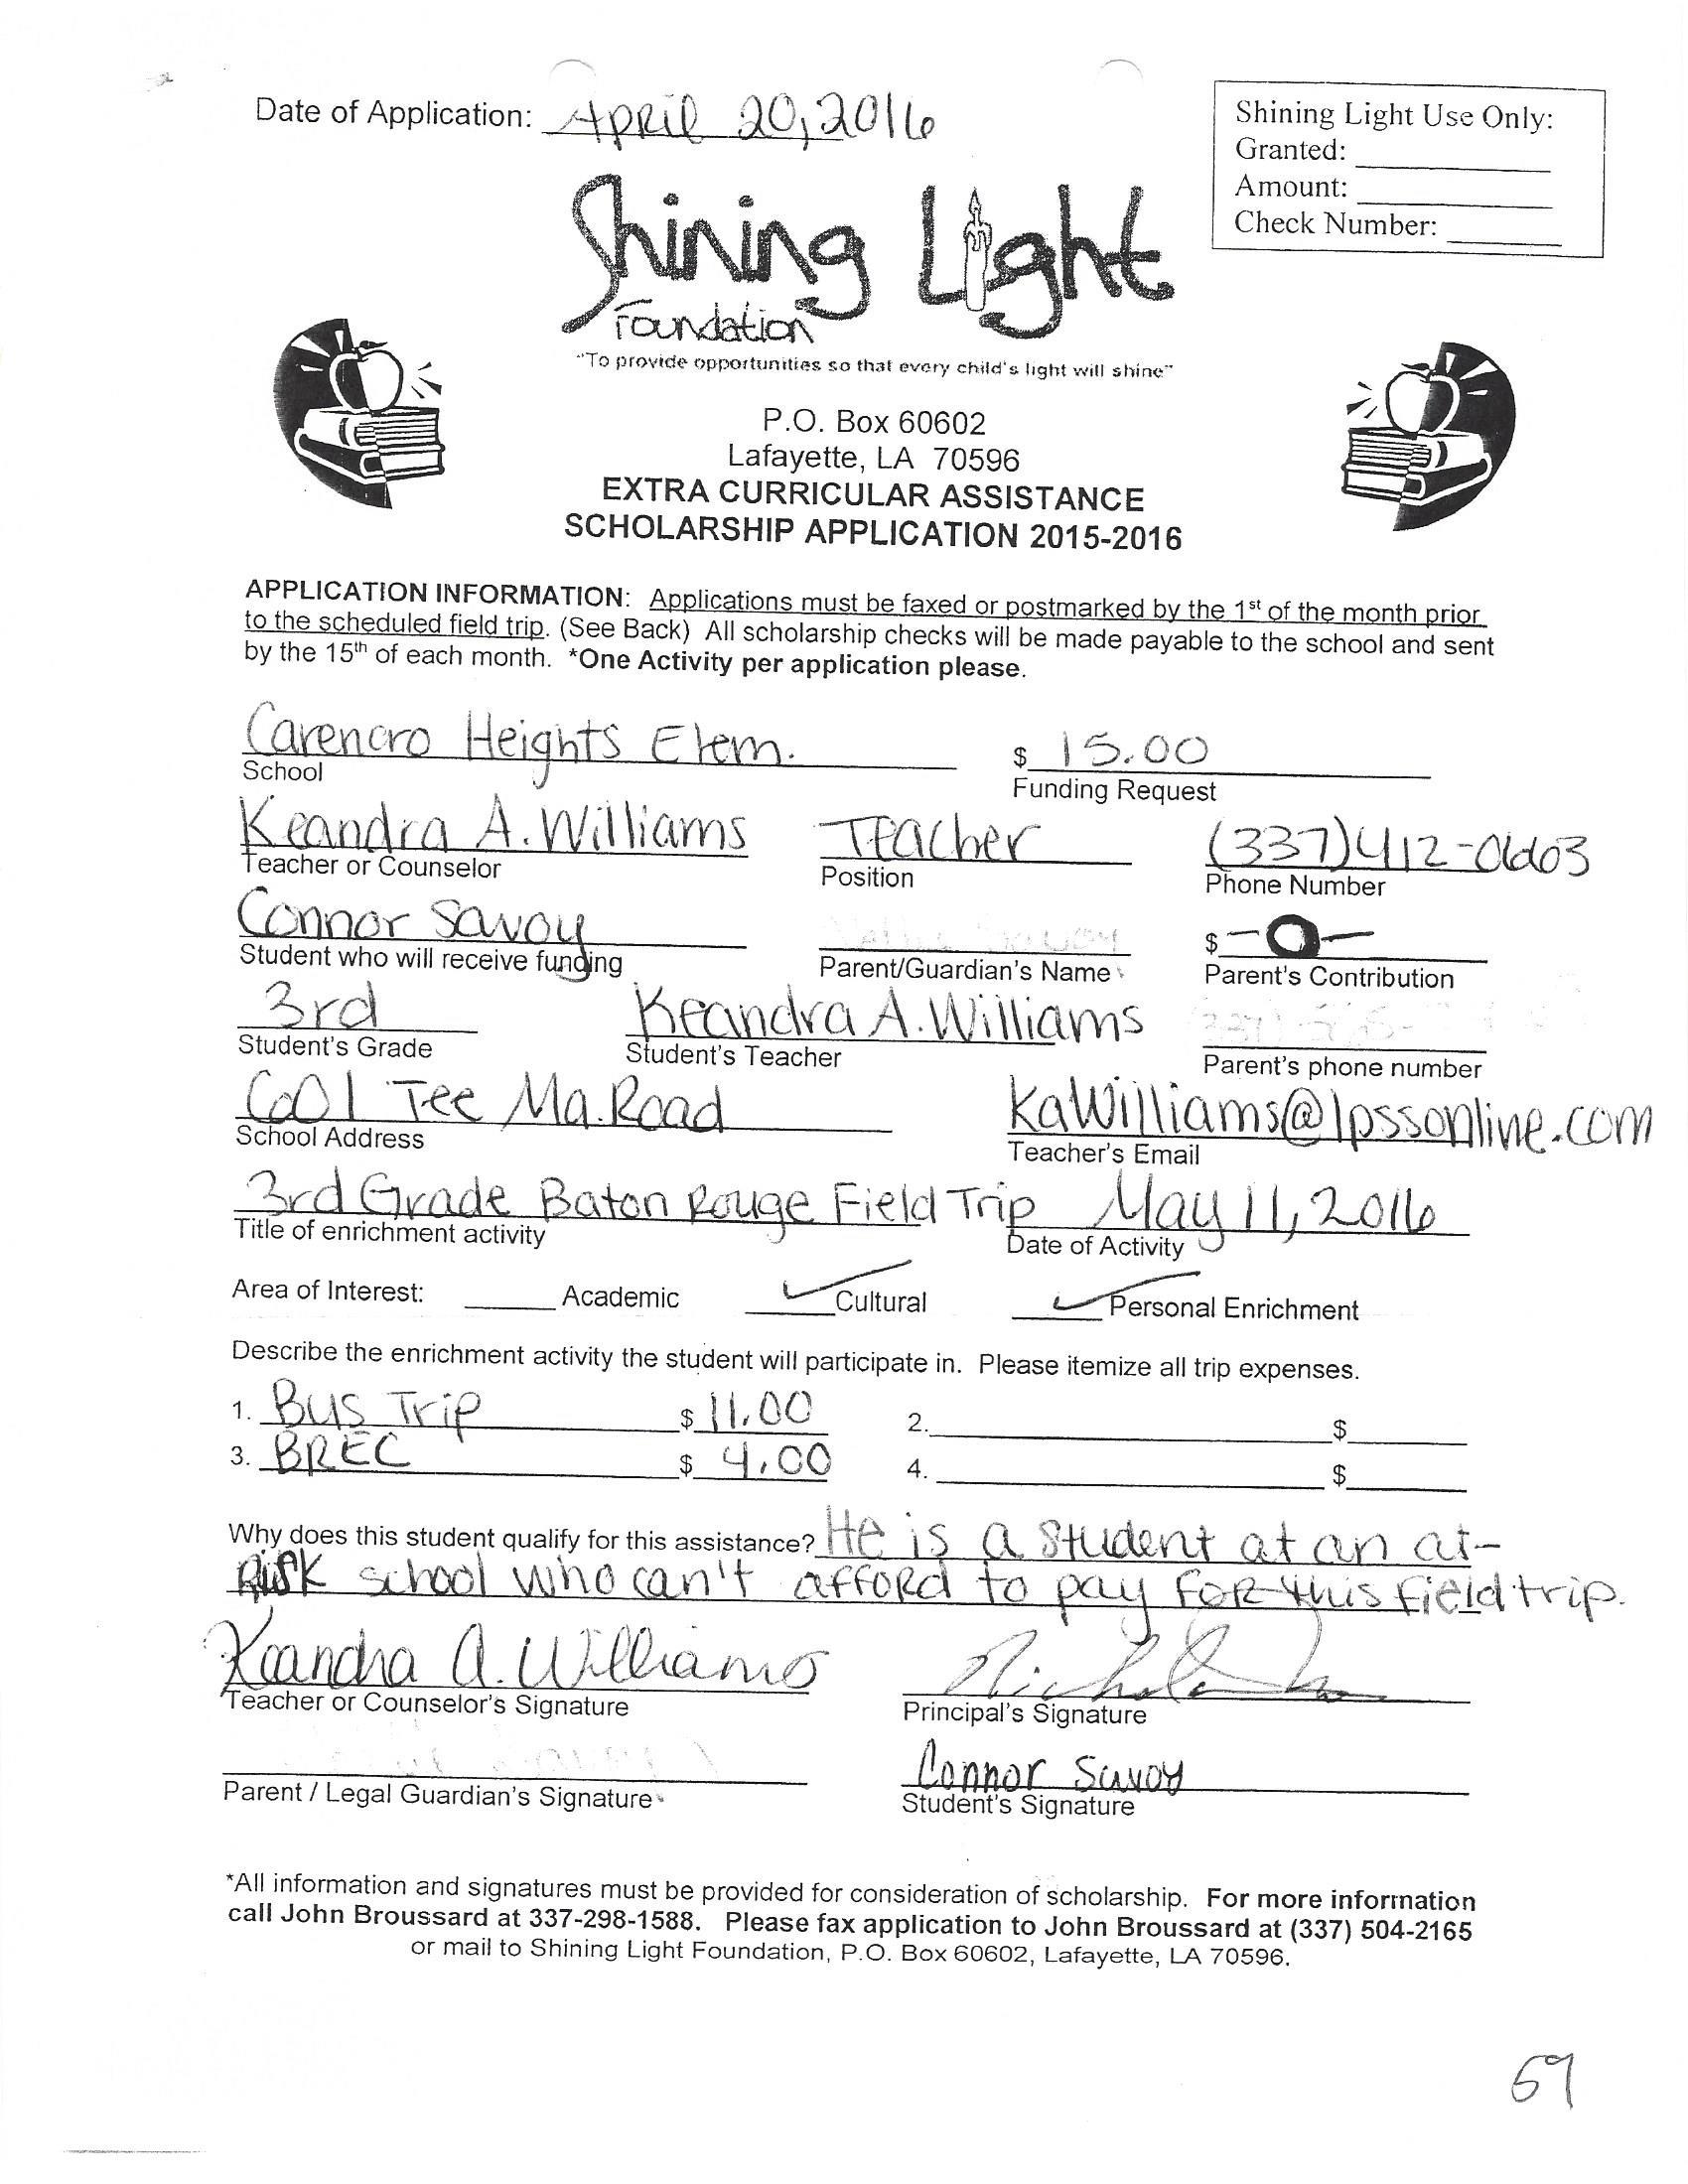 Date of Application: April 20, 2016
Shining Light Use Only:
Granted:
Amount:
Check Number:
Shining Light
Foundation
"To provide opportunities so that every child's light will shine"
P.O. Box 60602
Lafayette, LA 70596
EXTRA CURRICULAR ASSISTANCE
SCHOLARSHIP APPLICATION 2015-2016
APPLICATION INFORMATION: Applications must be faxed or postmarked by the 1st of the month prior
to the scheduled field trip. (See Back) All scholarship checks will be made payable to the school and sent
by the 15th of each month. *One Activity per application please.
Carencro Heights Elem. $ 15.00
School Funding Request
Keandra A. Williams Teacher (337) 412-0663
Teacher or Counselor Position Phone Number
Connor Savoy $ -0-
Student who will receive funding Parent/Guardian's Name Parent's Contribution
3rd Keandra A. Williams
Student's Grade Student's Teacher Parent's phone number
601 Tee Ma. Road KaWilliams@lpssonline.com
School Address Teacher's Email
3rd Grade Baton Rouge Field Trip May 11, 2016
Title of enrichment activity Date of Activity
Area of Interest: Academic ✓ Cultural ✓ Personal Enrichment
Describe the enrichment activity the student will participate in. Please itemize all trip expenses.
1. Bus Trip $ 11.00 2. $
3. BREC $ 4.00 4. $
Why does this student qualify for this assistance? He is a student at an at-
Risk school who can't afford to pay for this field trip.
Keandra A. Williams
Teacher or Counselor's Signature Principal's Signature
Connor Savoy
Parent / Legal Guardian's Signature Student's Signature
*All information and signatures must be provided for consideration of scholarship. For more information
call John Broussard at 337-298-1588. Please fax application to John Broussard at (337) 504-2165
or mail to Shining Light Foundation, P.O. Box 60602, Lafayette, LA 70596.
59